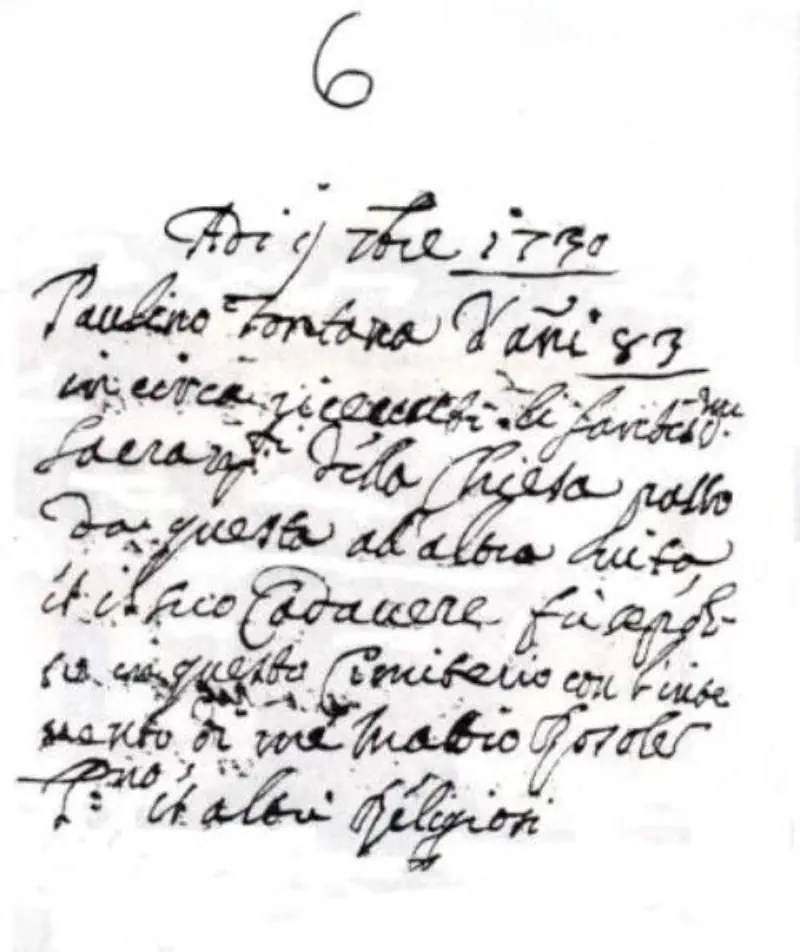 6
Adi 9 7bre 1730
Paulino Fontana d'añi 83
in circa riceuuti li santiss.mi
Sacram.ti della Chiesa passò
da questa al'altra uita,
et il suo Cadauere fù sepol-
to in questo Cimiterio con l'inter
uento di me Mattio
et altri Religiosi